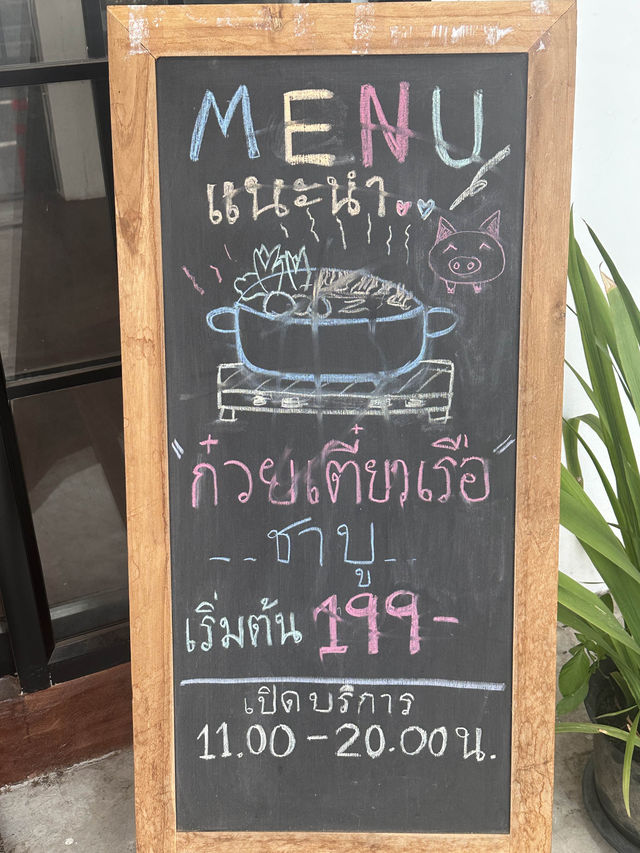 MENU
แนะนำ
"ก๋วยเตี๋ยวเรือ"
--ชาบู--
เริ่มต้น 199-
เปิดบริการ
11.00-20.00 น.